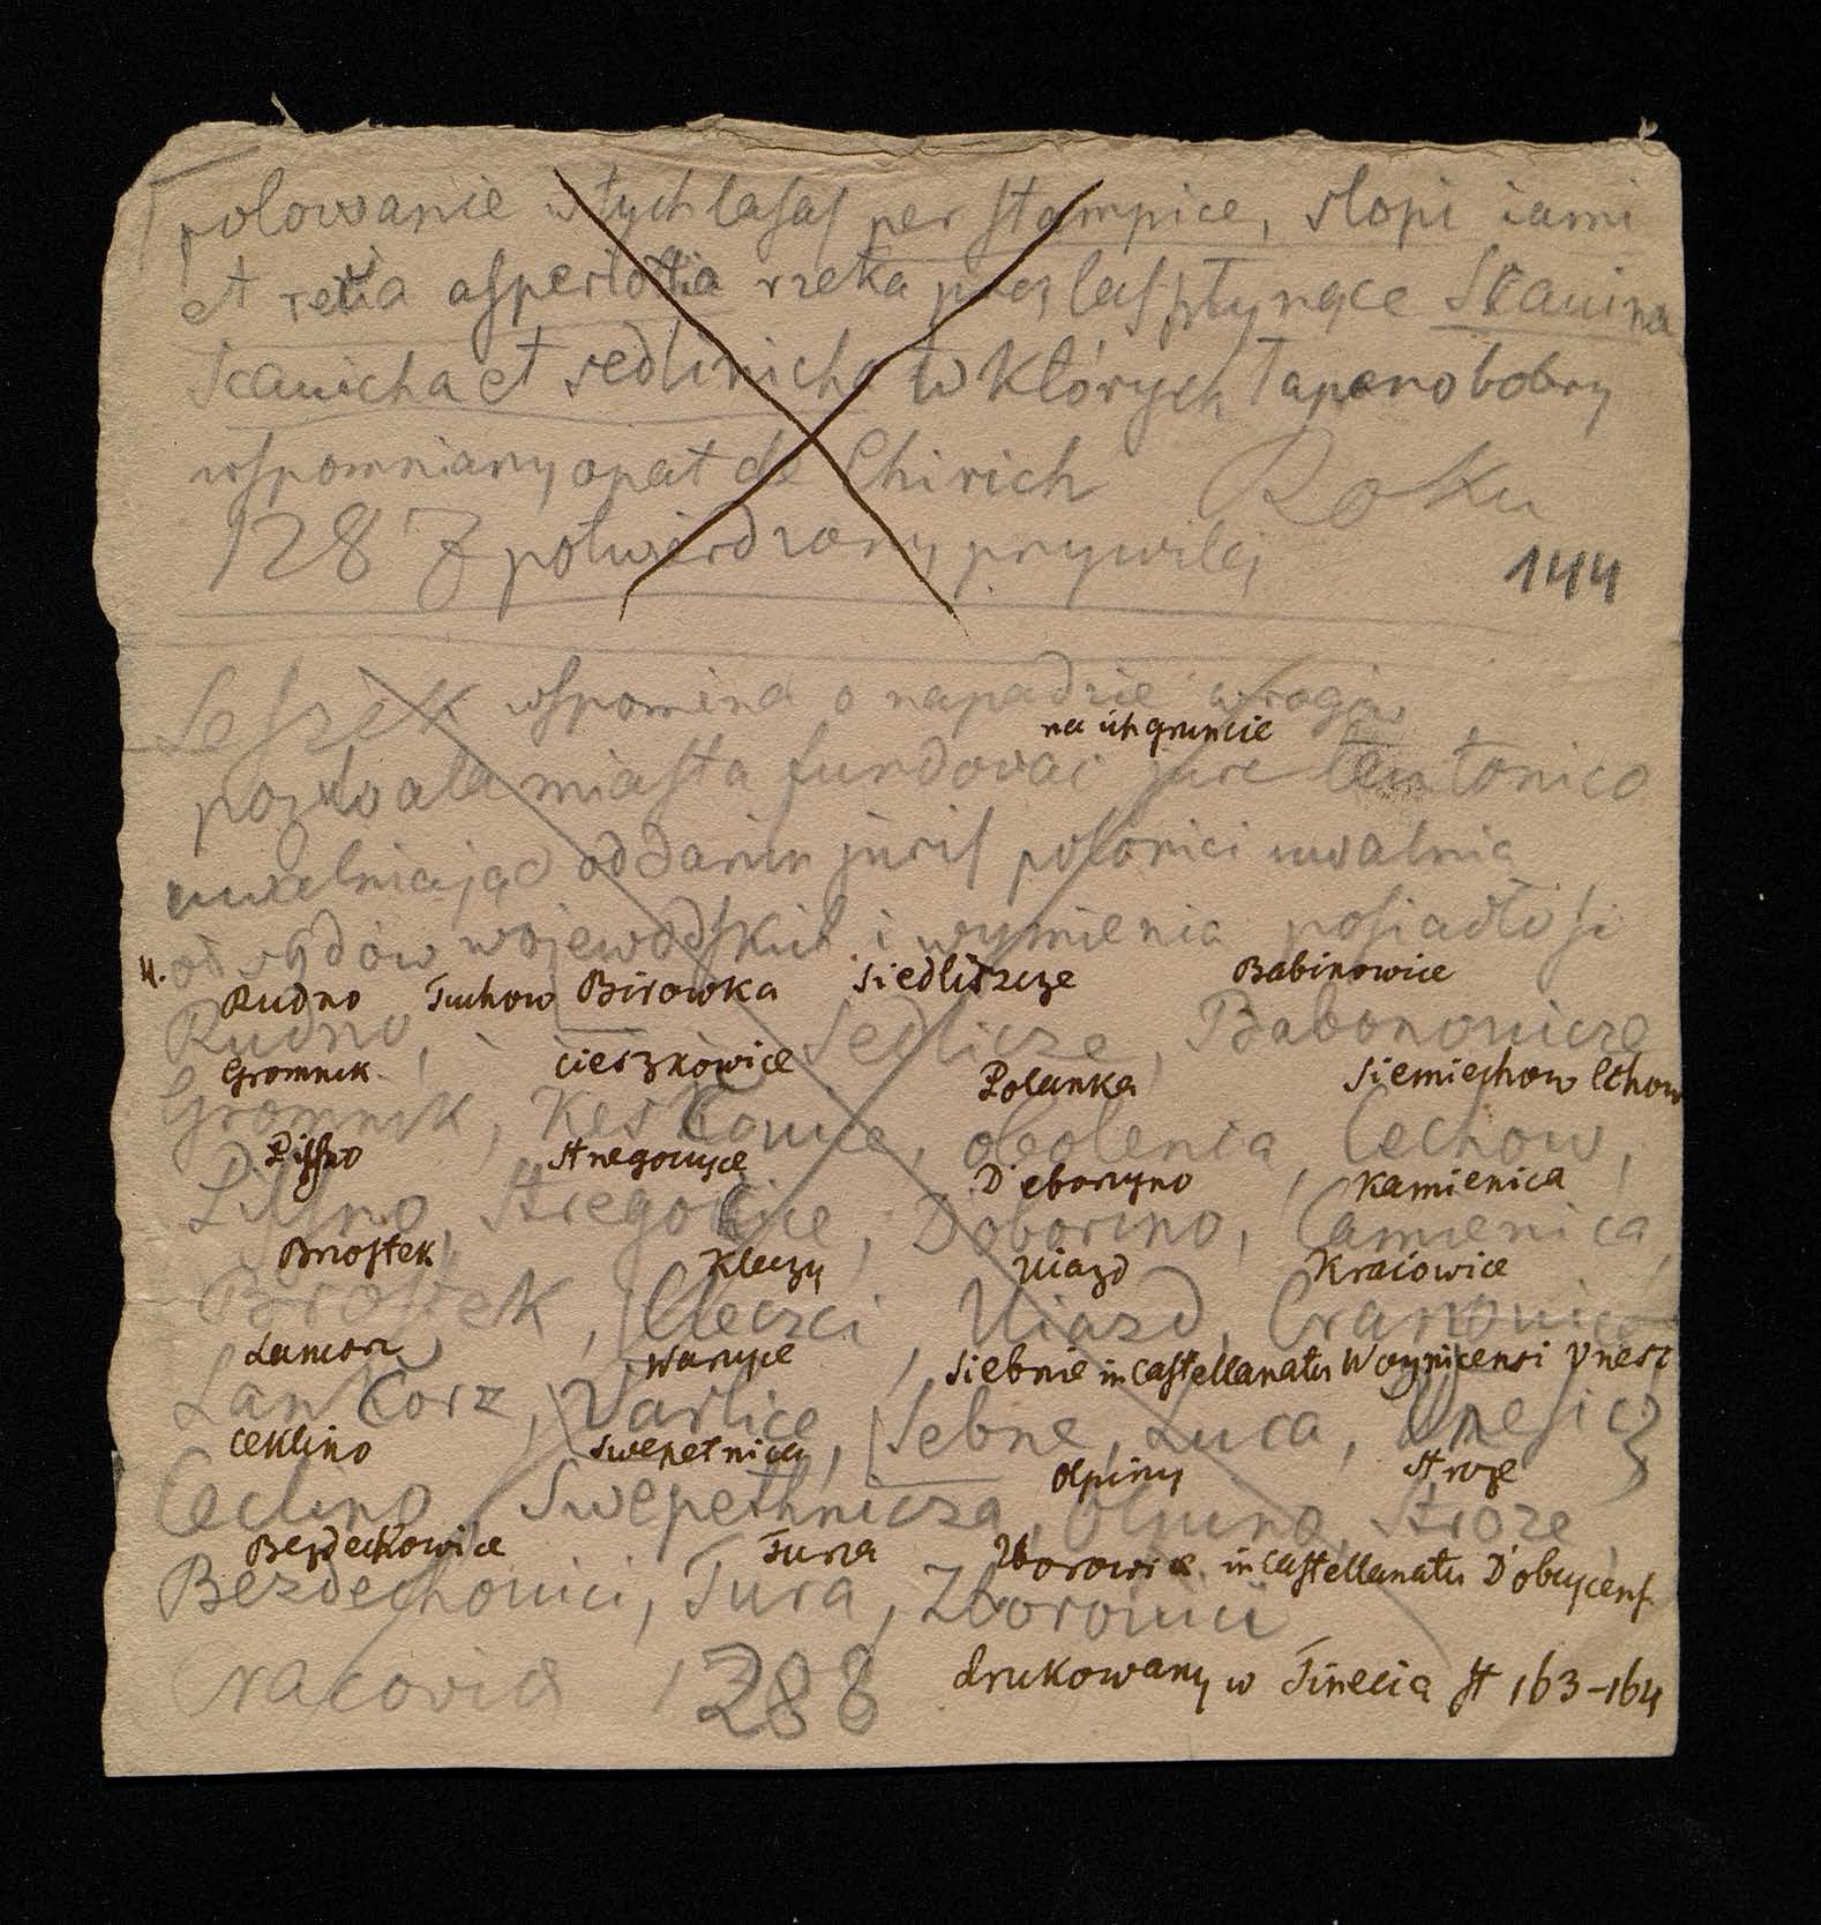 polowanie w tych lasaſ per stampice, slopi iami
et retia asperiolia rzeka przez laſ płynące Scauina
Scauicha et sedlinicha w których łapano bobry
wspomniany opat de Chirich Roku
1287 potwierdzony prywilej
144
Leszek wspomina o napadzie wrogów
na ich gruncie
pozwala miasta fundować jure teutonico
uwalniając od danin juris polonici uwalnia
od sądów wojewodskich i wymienia posiadłości
4. Rudno Tuchow Birowka Siedliszcze Babinowice
Rudno, Sedlicze, Babonouicze
Gromnik Cieszkowice Polanka Siemiechow lchow
Gromnik, Keskouice, obolenia, Cechow,
Pilſno Stregocyce D'eborzyno Kamienica
Pilſno, Stregocice, Doborino, Camienica,
Brzostek Kleczy Uiazd Kraiowice
Brostek, Cleczci, Uiazd, Cranouice
Lancorz Warzyce Siebnie in Castellanatu Woynicensi Vnesz
Lankorz, Varlice, Sebne, Luca, Unesicz
Ceklino Swepetnica Olpiny Stroze
Ceclino, Swepethnicza, Olpino, Stroze
Bezdechowice Tura Zborowice in Castellanatu D'obczycenſ.
Bezdechouici, Tura, Zborouici
Cracovia 1288 drukowany w Tinecia st 163-164